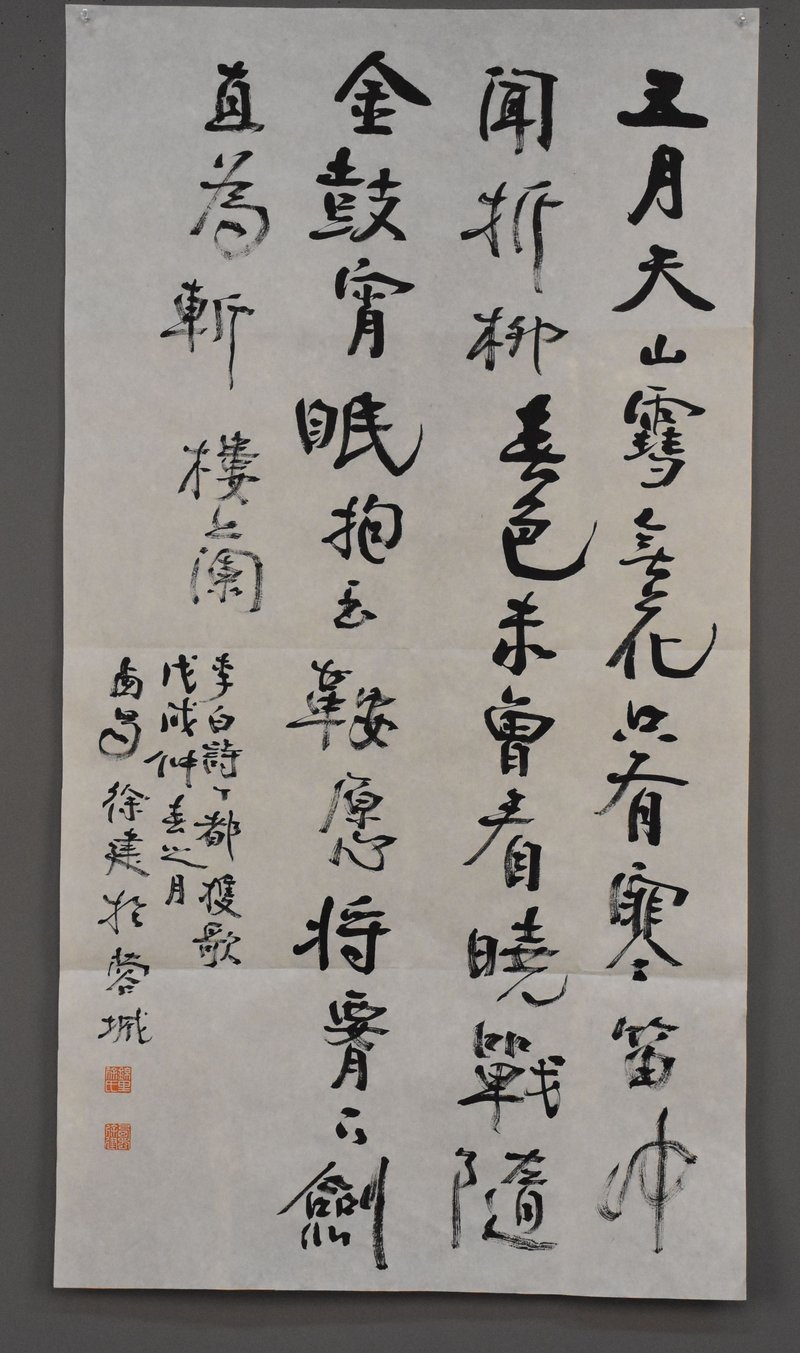 五月天山雪無花只有寒笛中
聞折柳春色未曾看曉戰隨
金鼓宵眠抱玉鞍愿将腰下劍
直為斬樓蘭
李白詩丁都獲歌
戊戌仲春之月
南昌徐建於蓉城